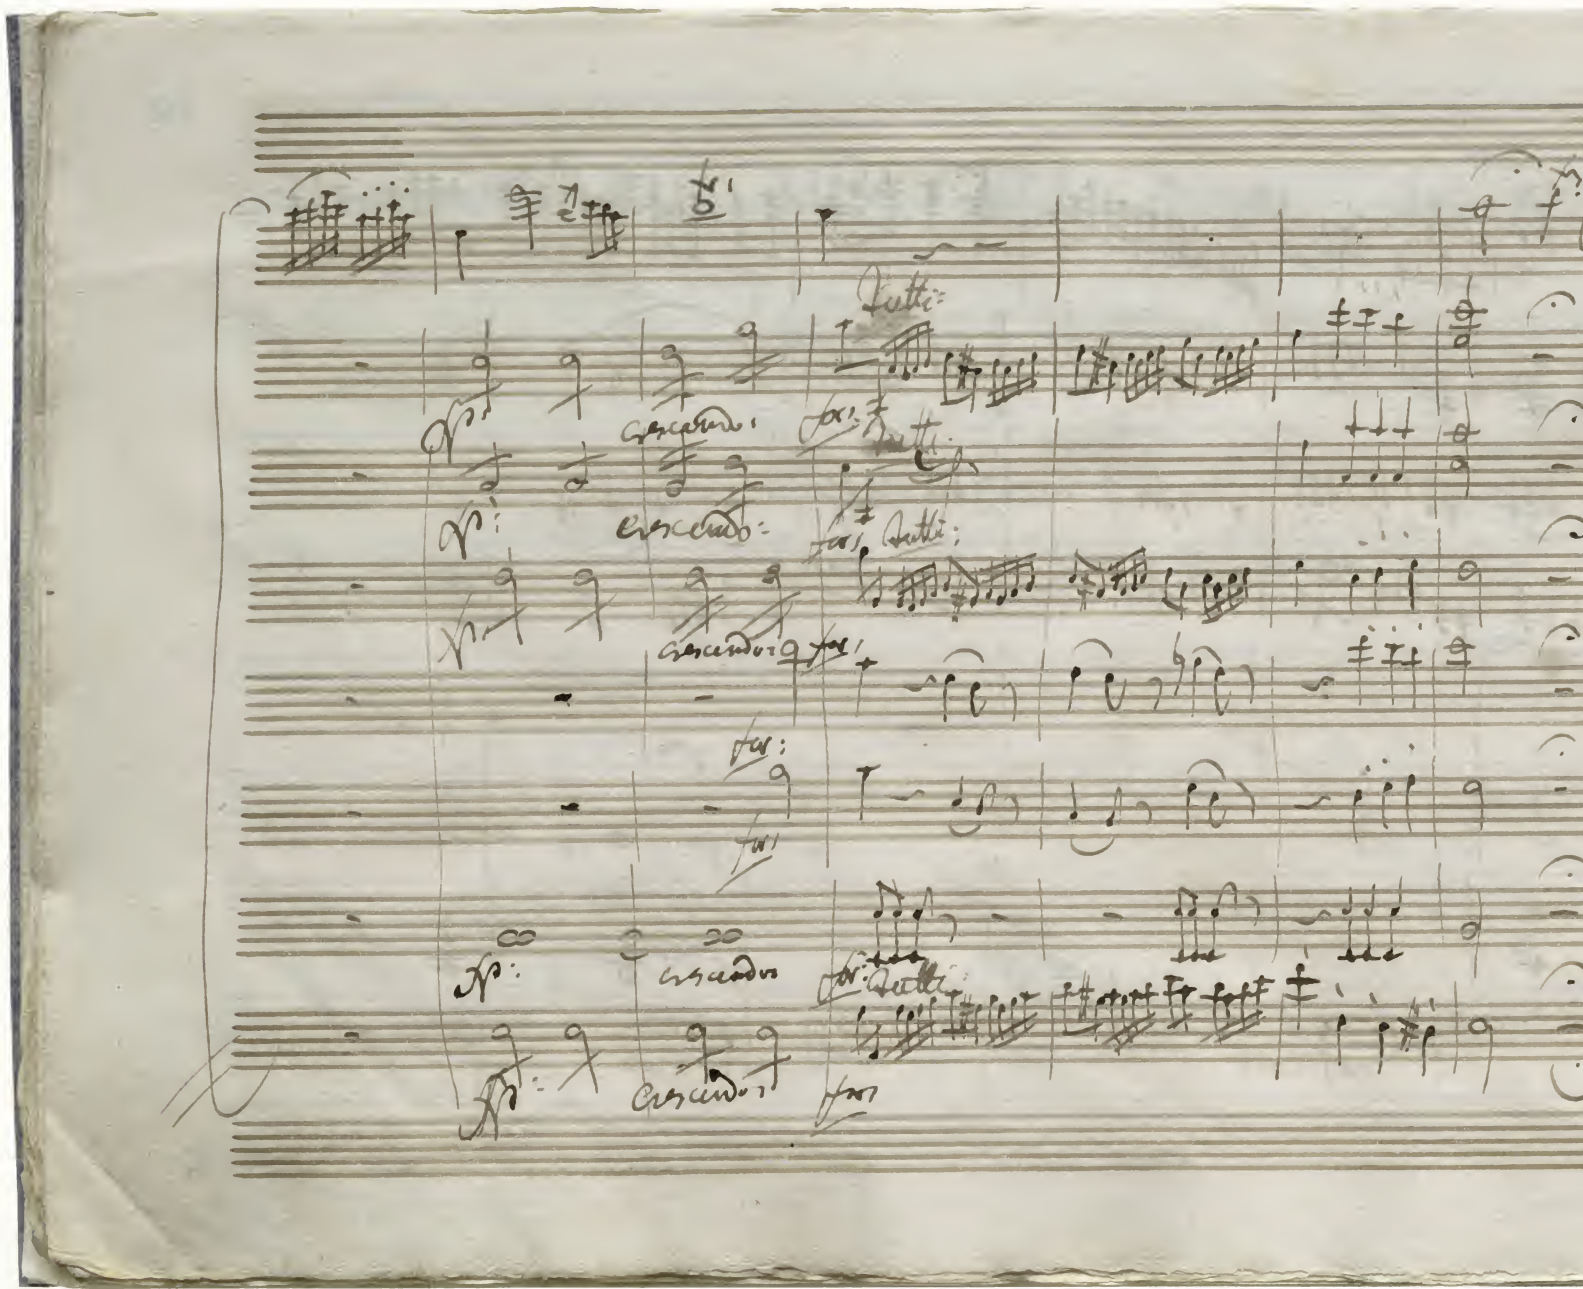 tr
Tutti:
crescendo: for:
Tutti:
crescendo: for: Tutti:
crescendo: for:
for:
for:
crescendo for: Tutti:
crescendo for: